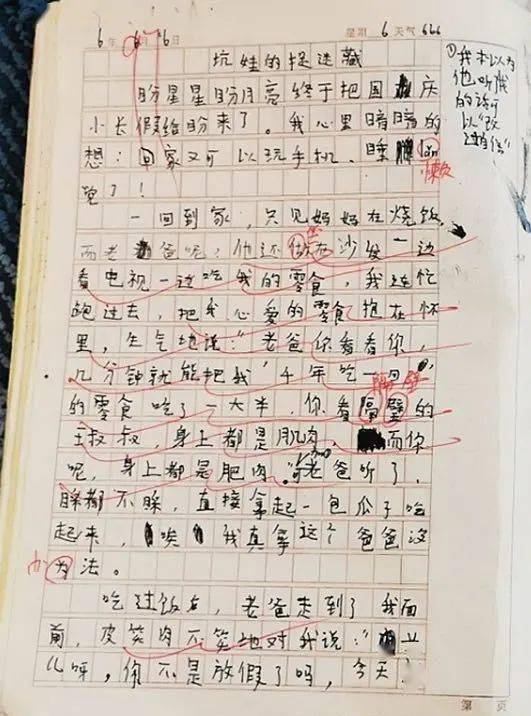 6年 6月6日 星期 6 天气 666
坑娃的捉迷藏
盼星星盼月亮终于把国庆
小长假给盼来了。我心里暗暗的
想：回家又可以玩手机、睡懒
觉了！
一回到家，只见妈妈在烧饭，
而老爸呢，他还做在沙发一边
看电视一边吃我的零食，我连忙
跑过去，把我心爱的零食抱在怀
里，生气地说："老爸你看看你，
几分钟就能把我"千年吃一口"
的零食吃了一大半，你看隔壁的
王叔叔，身上都是肌肉，而你
呢，身上都是肥肉。"老爸听了，
睬都不睬，直接拿起一包瓜子吃
起来，唉 我真拿这个爸爸没
为法。
办
吃过饭后，老爸走到了我面
前，皮笑肉不笑地对我说："
儿呀，你不是放假了吗，今天
①我本以为
他听我
的话可
以"改
坐
懒
隔壁
第 页